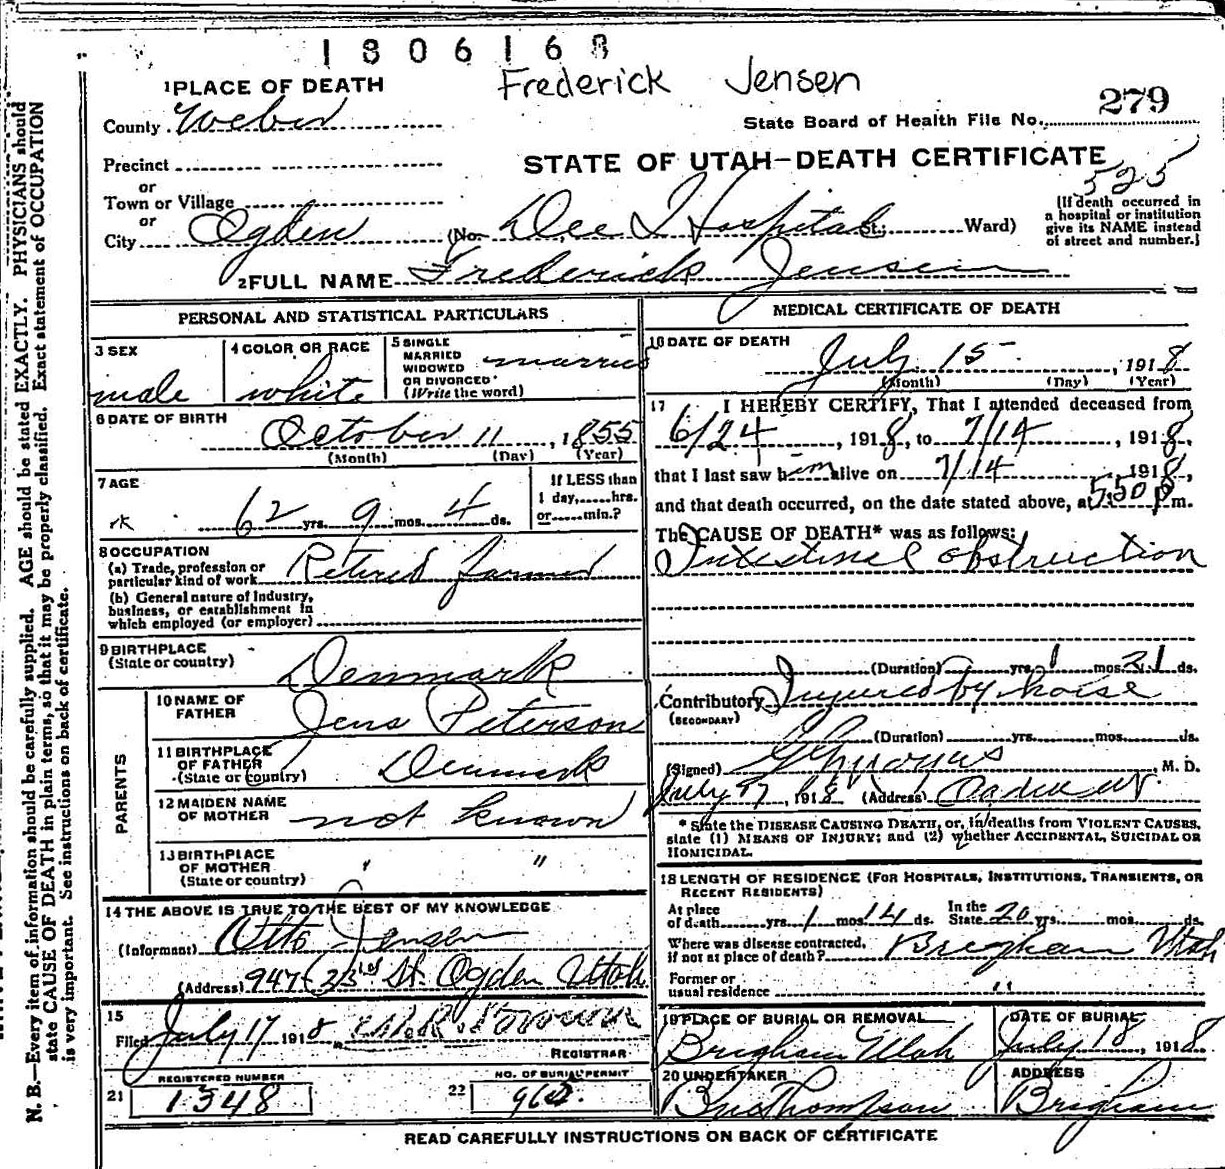 1806168
Frederick Jensen
279
1 PLACE OF DEATH
County Weber
State Board of Health File No.
Precinct
STATE OF UTAH—DEATH CERTIFICATE
525
or
Town or Village
or
City Ogden (No. Dee Hospital St.; Ward)
(If death occurred in
a hospital or institution
give its NAME instead
of street and number.)
2 FULL NAME Frederick Jensen
PERSONAL AND STATISTICAL PARTICULARS
3 SEX
male
4 COLOR OR RACE
white
5 SINGLE
MARRIED
WIDOWED
OR DIVORCED
(Write the word)
married
6 DATE OF BIRTH
October 11, 1855
(Month) (Day) (Year)
7 AGE
62 yrs. 9 mos. 4 ds.
If LESS than
1 day, hrs.
or min.?
8 OCCUPATION
(a) Trade, profession or
particular kind of work Retired farmer
(b) General nature of Industry,
business, or establishment in
which employed (or employer)
9 BIRTHPLACE
(State or country) Denmark
PARENTS
10 NAME OF
FATHER Jens Peterson
11 BIRTHPLACE
OF FATHER
(State or country) Denmark
12 MAIDEN NAME
OF MOTHER not known
13 BIRTHPLACE
OF MOTHER
(State or country) " "
14 THE ABOVE IS TRUE TO THE BEST OF MY KNOWLEDGE
(Informant) Otto Jensen
(Address) 947 - 23rd St. Ogden Utah
15
Filed July 17 1918
REGISTRAR
REGISTERED NUMBER
21 1348
NO. OF BURIAL PERMIT
22
MEDICAL CERTIFICATE OF DEATH
16 DATE OF DEATH
July 15, 1918
(Month) (Day) (Year)
17 I HEREBY CERTIFY, That I attended deceased from
6/24, 1918, to 7/14, 1918,
that I last saw him alive on 7/14 1918,
and that death occurred, on the date stated above, at 5:50 p m.
The CAUSE OF DEATH* was as follows:
Intestinal obstruction
(Duration) yrs. 1 mos. 21 ds.
Contributory Injured by horse
(SECONDARY)
(Duration) yrs. mos. ds.
(Signed) , M. D.
July 17, 1918 (Address) Ogden Ut.
* State the DISEASE CAUSING DEATH, or, in deaths from VIOLENT CAUSES,
state (1) MEANS OF INJURY; and (2) whether ACCIDENTAL, SUICIDAL OR
HOMICIDAL.
18 LENGTH OF RESIDENCE (FOR HOSPITALS, INSTITUTIONS, TRANSIENTS, OR
RECENT RESIDENTS)
At place
of death yrs. 1 mos. 14 ds.
In the
State 20 yrs. mos. ds.
Where was disease contracted,
if not at place of death? Brigham Utah
Former or
usual residence "
19 PLACE OF BURIAL OR REMOVAL
Brigham Utah
DATE OF BURIAL
July 18, 1918
20 UNDERTAKER
Thompson
ADDRESS
Brigham
READ CAREFULLY INSTRUCTIONS ON BACK OF CERTIFICATE
N. B.—Every item of information should be carefully supplied. AGE should be stated EXACTLY. PHYSICIANS should
state CAUSE OF DEATH in plain terms, so that it may be properly classified. Exact statement of OCCUPATION
is very important. See instructions on back of certificate.